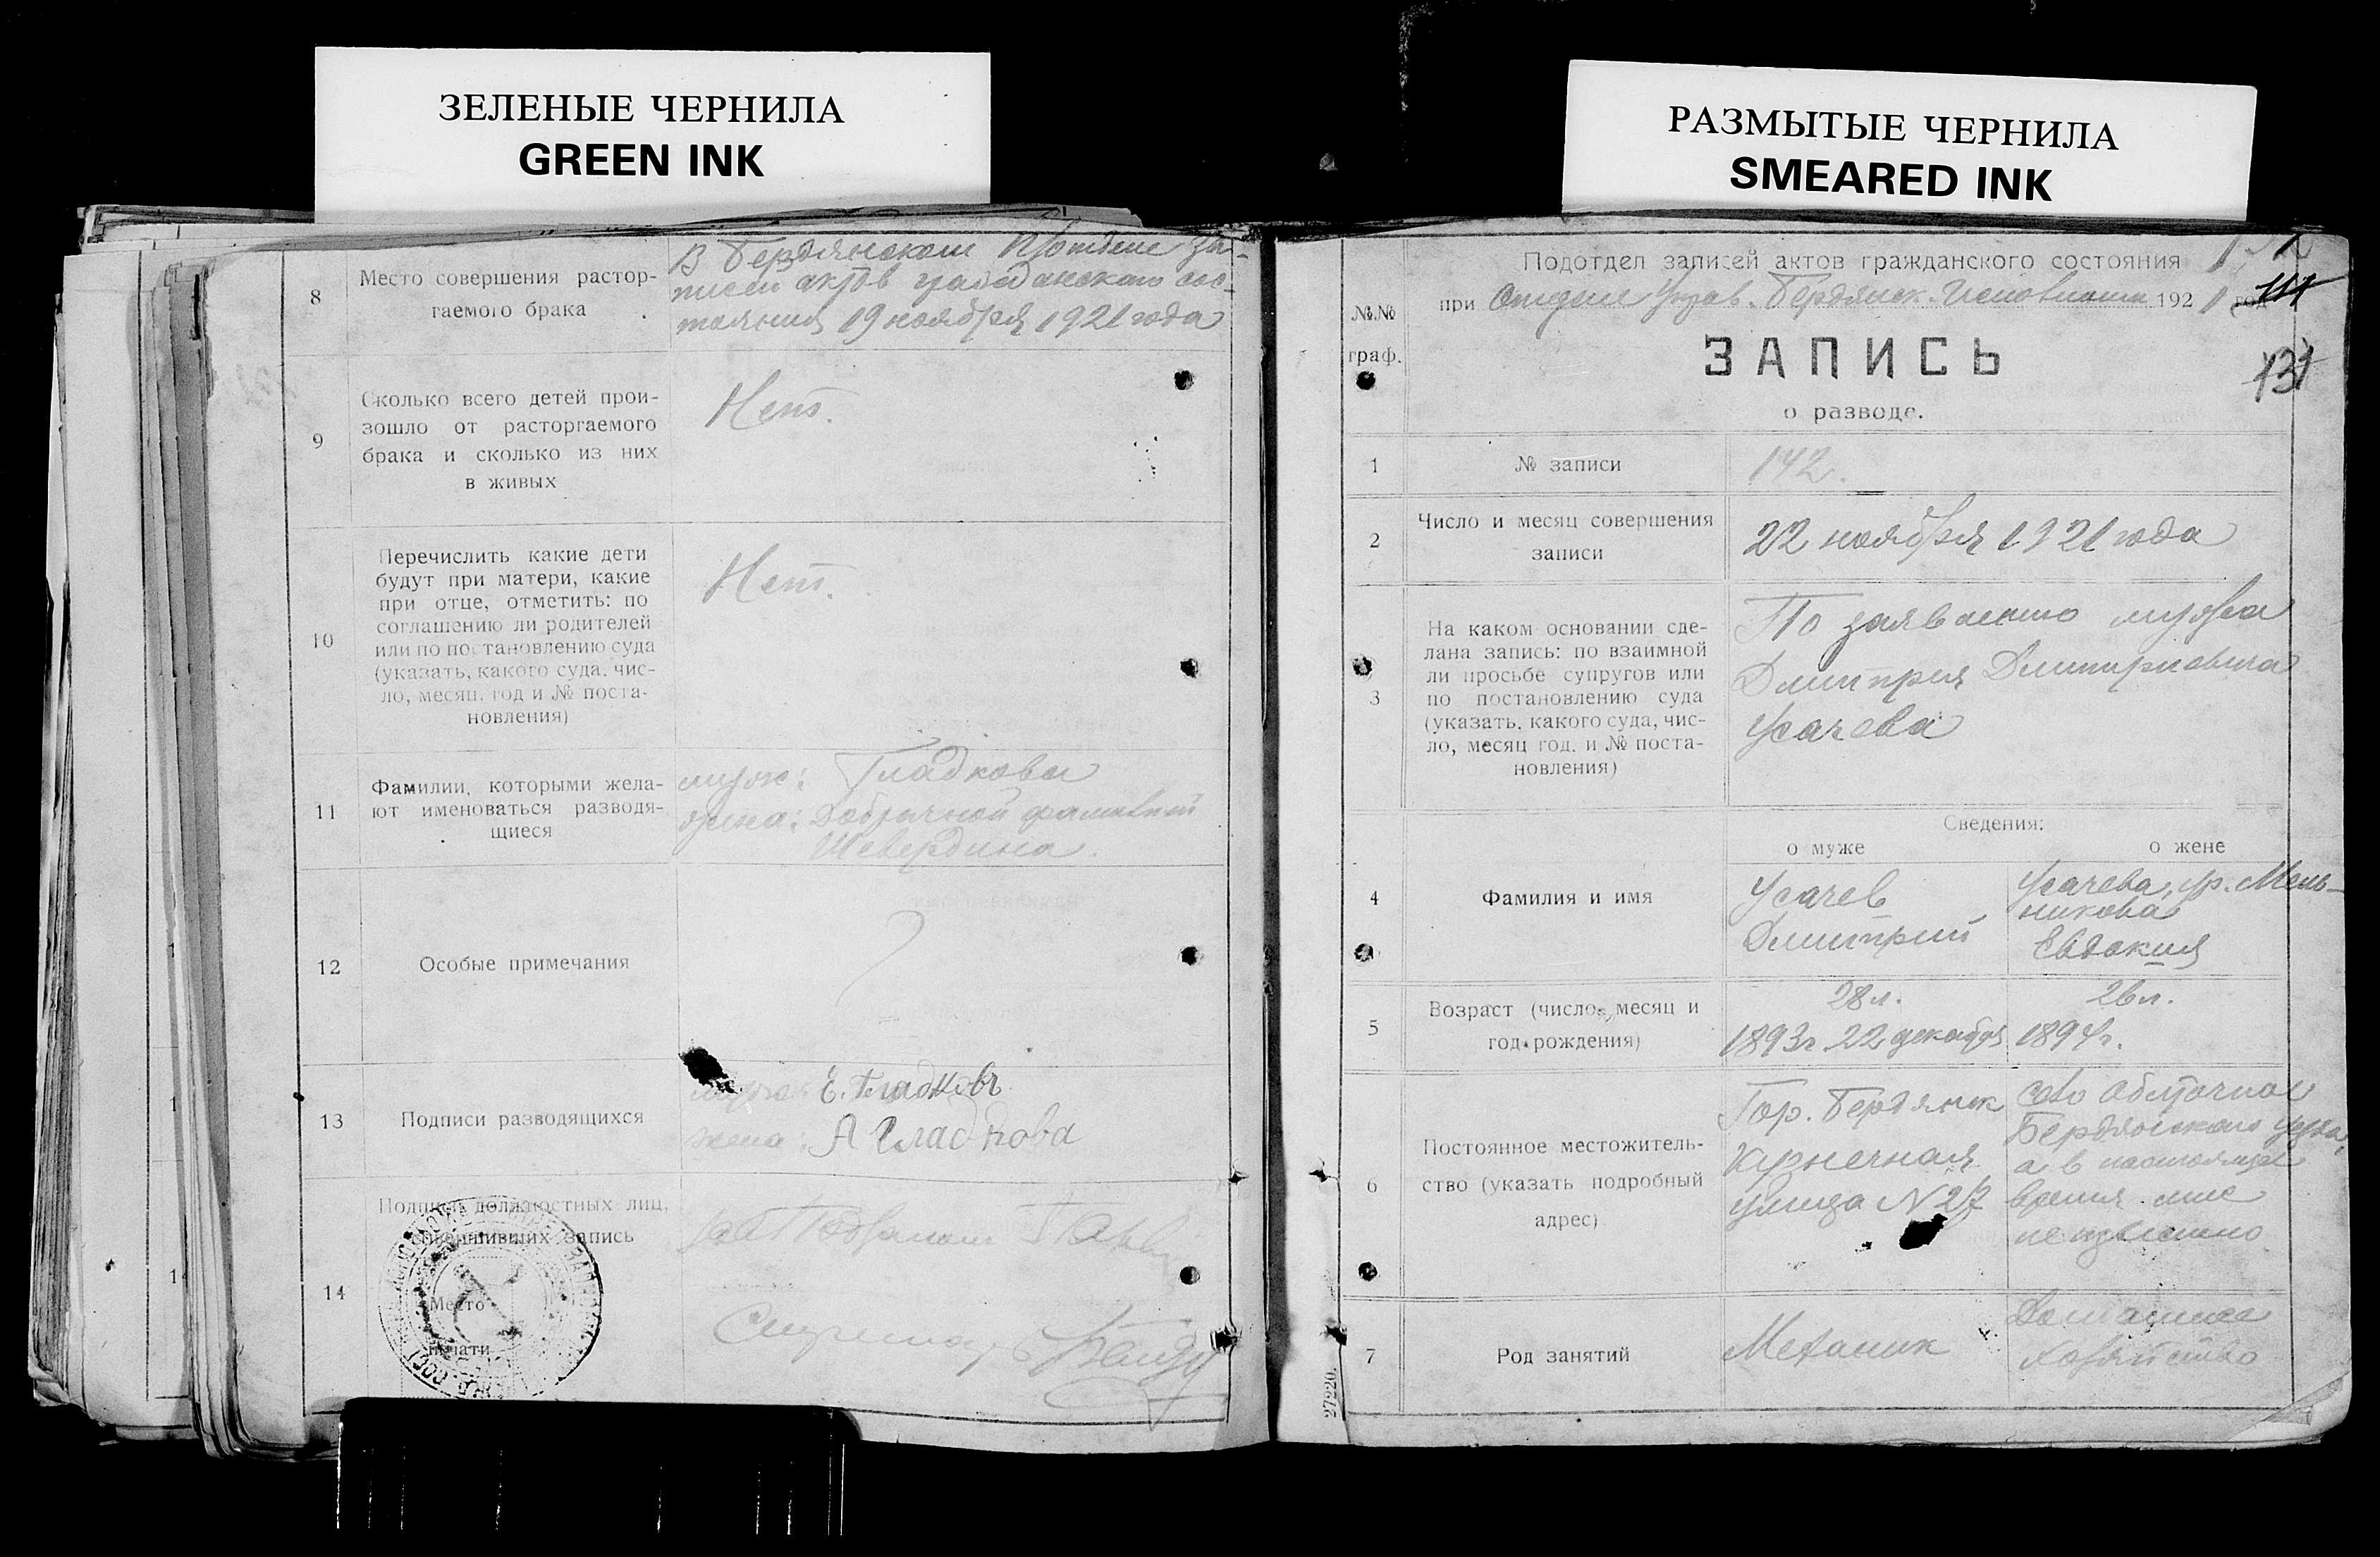 ЗЕЛЕНЫЕ ЧЕРНИЛА
GREEN INK
РАЗМЫТЫЕ ЧЕРНИЛА
SMEARED INK
8
Место совершения растор-
гаемого брака
В Бердянском П/отделе за-
писей актов гражданского сос-
тояния 19 ноября 1921 года
9
Сколько всего детей прои-
зошло от расторгаемого
брака и сколько из них
в живых
Нет.
10
Перечислить какие дети
будут при матери, какие
при отце, отметить: по
соглашению ли родителей
или по постановлению суда
(указать, какого суда, чис-
ло, месяц, год и № поста-
новления)
Нет.
11
Фамилии, которыми жела-
ют именоваться разводя-
щиеся
муж: Гладковы
жена: Добрачной фамилией
Шевердина.
12
Особые примечания
13
Подписи разводящихся
муж: Е. Гладковъ
жена: А Гладкова
14
Подписи должностных лиц,
совершивших запись
Место
печати
Зав. Подотделом
Секретарь
Подотдел записей актов гражданского состояния
при Отделе Управ. Бердянск. Исполкома 1921 год
111
131
№№
граф.
ЗАПИСЬ
о разводе.
1
№ записи
142.
2
Число и месяц совершения
записи
22 ноября 1921 года
3
На каком основании сде-
лана запись: по взаимной
ли просьбе супругов или
по постановлению суда
(указать, какого суда, чис-
ло, месяц год, и № поста-
новления)
По заявлению мужа
Дмитрия Дмитриевича
Усачева
Сведения:
о муже
о жене
4
Фамилия и имя
Усачев
Дмитрий
Усачева, ур. Мель-
никова
Евдокия
5
Возраст (число, месяц и
год рождения)
28 л.
1893г 22 декабря
26 л.
1894г.
6
Постоянное местожитель-
ство (указать подробный
адрес)
Гор. Бердянск
Кузнечная
улица N 27
село Обиточное
Бердянского уезда,
а в настоящее
время мне
неизвестно
7
Род занятий
Механик
Домашнее
хозяйство
27220